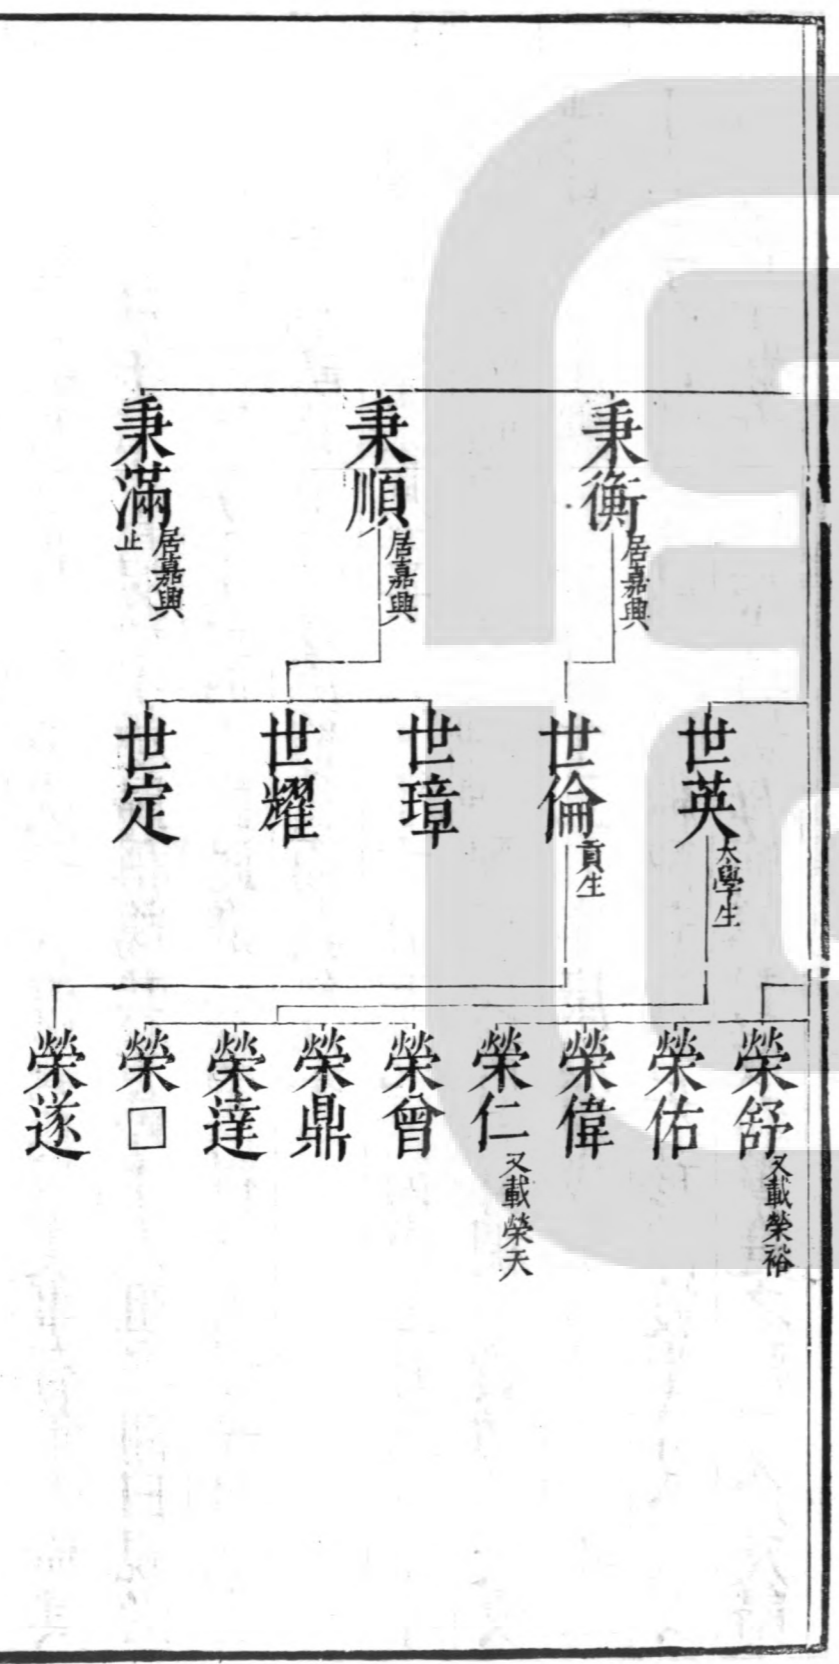 秉衡居嘉興
秉順居嘉興
秉滿居嘉興止
世英太學生
世倫貢生
世璋
世耀
世定
榮舒又載榮裕
榮佑
榮偉
榮仁又載榮天
榮曾
榮鼎
榮達
榮□
榮遂